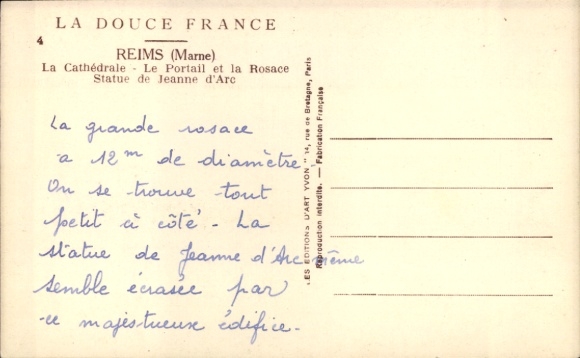 LA DOUCE FRANCE
4
REIMS (Marne)
La Cathédrale - Le Portail et la Rosace
Statue de Jeanne d'Arc
La grande rosace
a 12m de diamètre
On se trouve tout
petit à côté - La
statue de Jeanne d'Arc même
semble écrasée par
ce majestueux édifice -
LES EDITIONS D'ART YVON" 14, rue de Bretagne, Paris
Reproduction interdite. — Fabrication Française